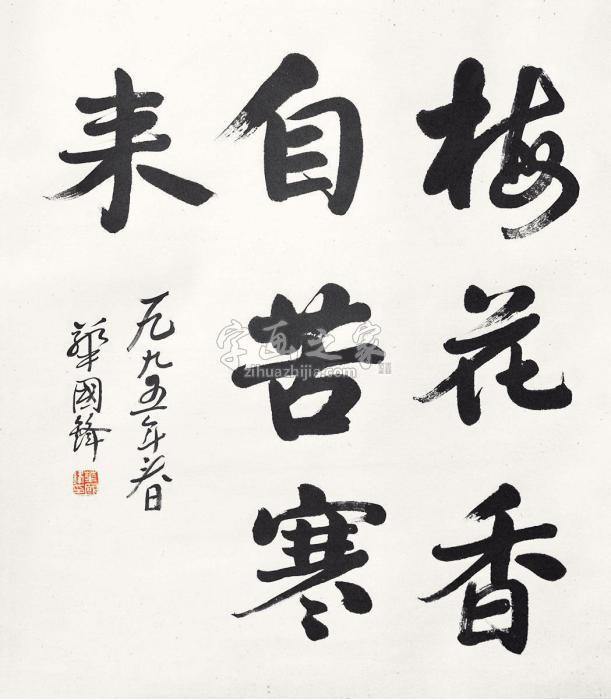 梅花香
自苦寒
来
一九九五年春
華國鋒
字画之家
zihuazhijia.com